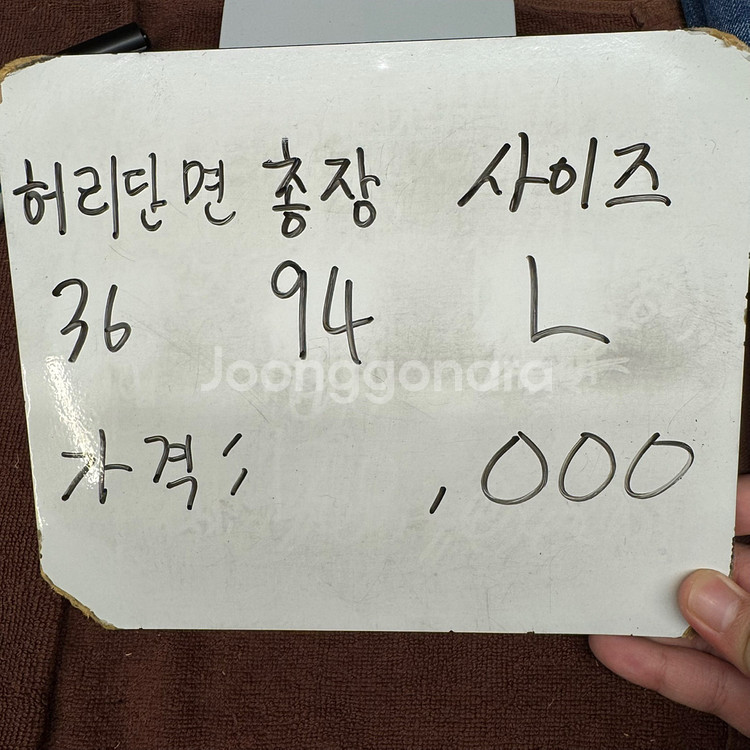 허리단면 총장 사이즈
36 94 L
Joonggondra
가격; ,000